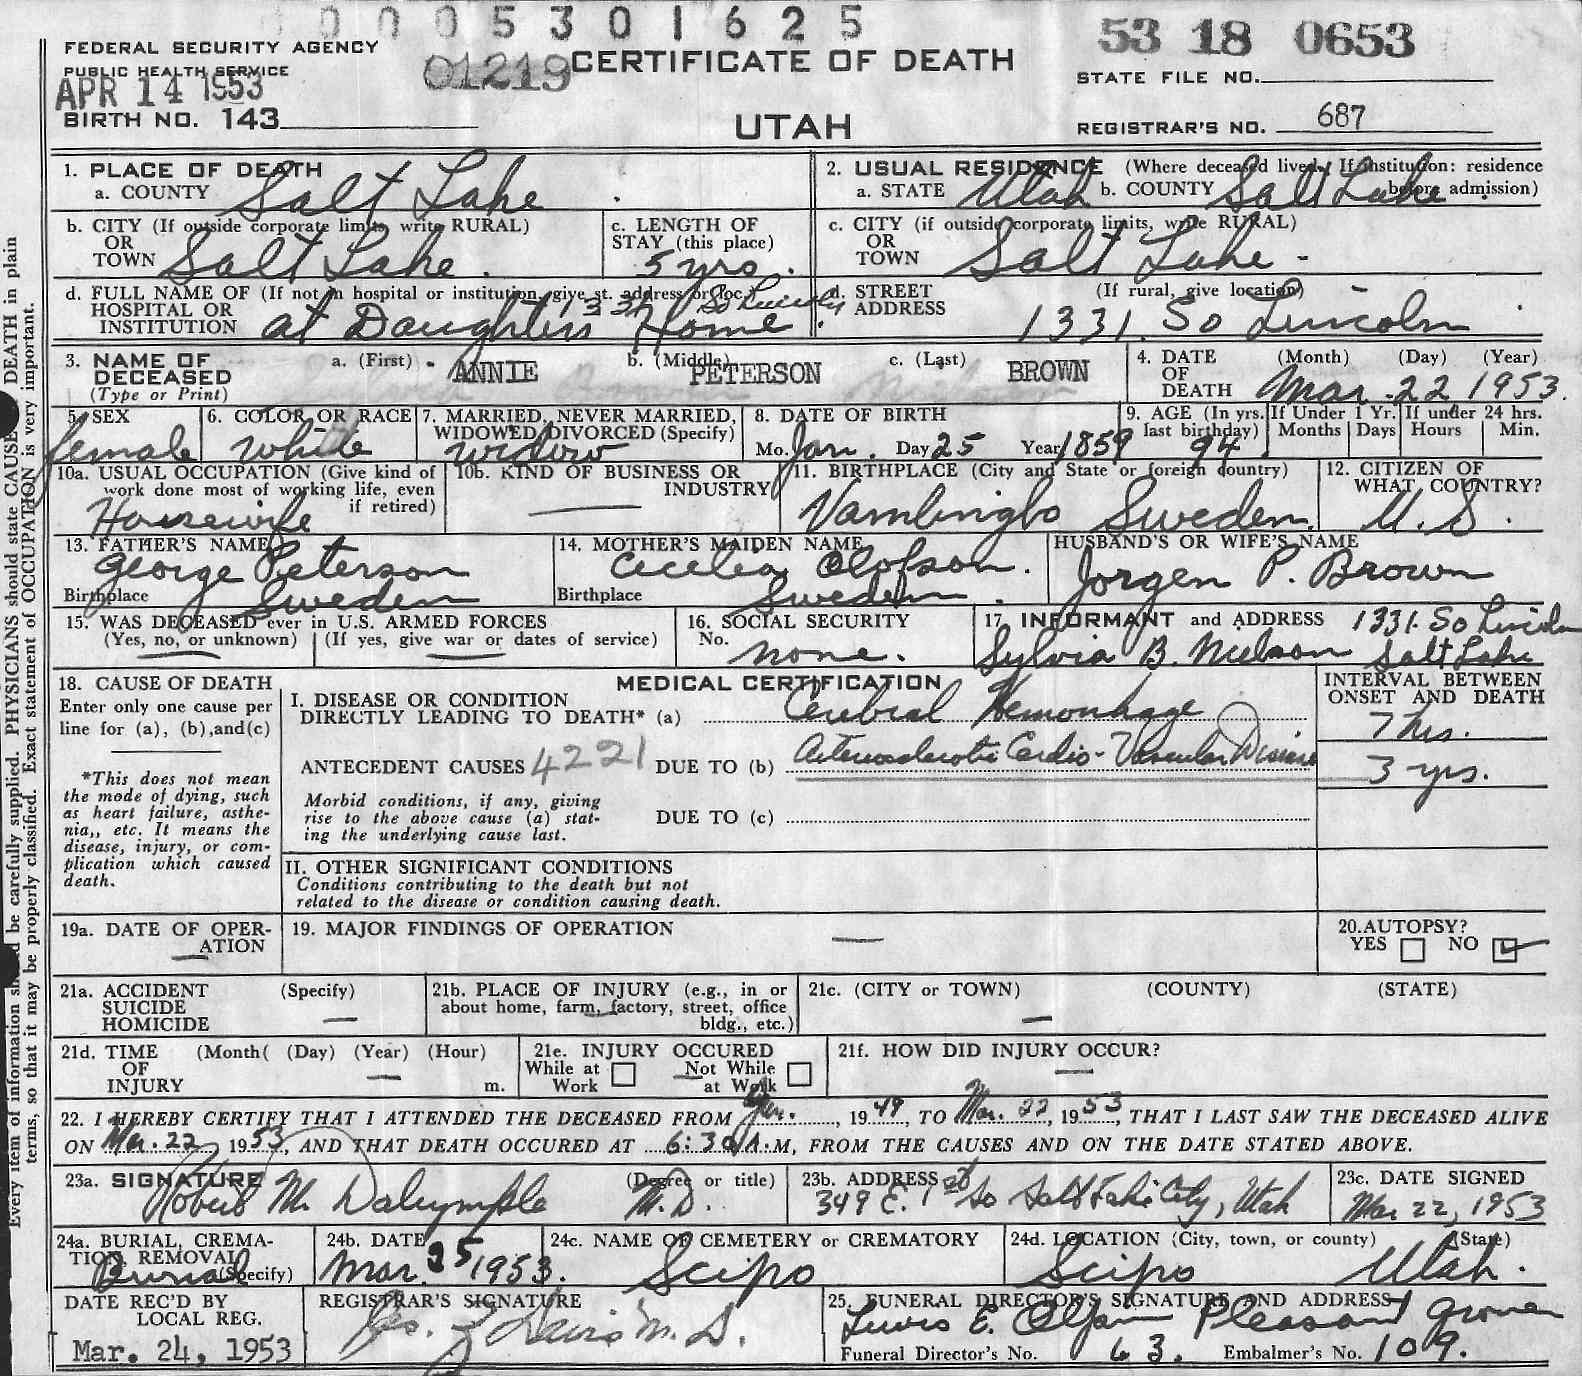 0 0 0 5 3 0 1 6 2 5
53 18 0653
FEDERAL SECURITY AGENCY
PUBLIC HEALTH SERVICE
APR 14 1953
01219
CERTIFICATE OF DEATH
STATE FILE NO.
BIRTH NO. 143
UTAH
REGISTRAR'S NO. 687
1. PLACE OF DEATH
a. COUNTY Salt Lake
2. USUAL RESIDENCE (Where deceased lived. If institution: residence before admission)
a. STATE Utah b. COUNTY Salt Lake
b. CITY (If outside corporate limits, write RURAL)
OR
TOWN Salt Lake.
c. LENGTH OF
STAY (this place)
5 yrs.
c. CITY (if outside corporate limits, write RURAL)
OR
TOWN Salt Lake -
d. FULL NAME OF (If not in hospital or institution, give st. address or loc.)
HOSPITAL OR
INSTITUTION at Daughters Home 1331 So Lincoln
d. STREET (If rural, give location)
ADDRESS 1331. So Lincoln
3. NAME OF
DECEASED
(Type or Print)
a. (First) ANNIE b. (Middle) PETERSON c. (Last) BROWN
4. DATE (Month) (Day) (Year)
OF
DEATH Mar. 22 1953.
5. SEX
female
6. COLOR OR RACE
White
7. MARRIED, NEVER MARRIED,
WIDOWED, DIVORCED (Specify)
widow
8. DATE OF BIRTH
Mo. Jan. Day 25 Year 1859
9. AGE (In yrs. last birthday)
94.
If Under 1 Yr.
Months Days
If under 24 hrs.
Hours Min.
10a. USUAL OCCUPATION (Give kind of
work done most of working life, even
if retired)
Housewife
10b. KIND OF BUSINESS OR
INDUSTRY
11. BIRTHPLACE (City and State or foreign country)
Vamlingbo Sweden.
12. CITIZEN OF
WHAT COUNTRY?
U.S.
13. FATHER'S NAME
George Peterson
Birthplace Sweden
14. MOTHER'S MAIDEN NAME
Cecelea Olofson.
Birthplace Sweden.
HUSBAND'S OR WIFE'S NAME
Jorgen P. Brown
15. WAS DECEASED ever in U.S. ARMED FORCES
(Yes, no, or unknown) (If yes, give war or dates of service)
16. SOCIAL SECURITY
No. none.
17. INFORMANT and ADDRESS 1331. So Lincoln
Sylvia B. Nielson Salt Lake
18. CAUSE OF DEATH
Enter only one cause per
line for (a), (b),and(c)
*This does not mean
the mode of dying, such
as heart failure, asthe-
nia,, etc. It means the
disease, injury, or com-
plication which caused
death.
MEDICAL CERTIFICATION
I. DISEASE OR CONDITION
DIRECTLY LEADING TO DEATH* (a) Cerebral Hemorrhage
ANTECEDENT CAUSES 4221 DUE TO (b) Arteriosclerotic Cardio-Vascular Disease
Morbid conditions, if any, giving
rise to the above cause (a) stat-
ing the underlying cause last.
DUE TO (c)
INTERVAL BETWEEN
ONSET AND DEATH
7 hrs.
3 yrs.
II. OTHER SIGNIFICANT CONDITIONS
Conditions contributing to the death but not
related to the disease or condition causing death.
19a. DATE OF OPER-
ATION
19. MAJOR FINDINGS OF OPERATION
20. AUTOPSY?
YES NO
21a. ACCIDENT (Specify)
SUICIDE
HOMICIDE
21b. PLACE OF INJURY (e.g., in or
about home, farm, factory, street, office
bldg., etc.)
21c. (CITY or TOWN) (COUNTY) (STATE)
21d. TIME (Month( (Day) (Year) (Hour)
OF
INJURY m.
21e. INJURY OCCURED
While at Work Not While at Work
21f. HOW DID INJURY OCCUR?
22. I HEREBY CERTIFY THAT I ATTENDED THE DECEASED FROM Jan. 1949, TO Mar. 22, 1953, THAT I LAST SAW THE DECEASED ALIVE
ON Mar. 22 1953, AND THAT DEATH OCCURED AT 6:30 A.M, FROM THE CAUSES AND ON THE DATE STATED ABOVE.
23a. SIGNATURE (Degree or title)
Robert M. Dalrymple M.D.
23b. ADDRESS
349 E. 1st So Salt Lake City, Utah
23c. DATE SIGNED
Mar 22, 1953
24a. BURIAL, CREMA-
TION, REMOVAL
(Specify)
Burial
24b. DATE
Mar. 25 1953.
24c. NAME OF CEMETERY or CREMATORY
Scipio
24d. LOCATION (City, town, or county) (State)
Scipio Utah.
DATE REC'D BY
LOCAL REG.
Mar. 24, 1953
REGISTRAR'S SIGNATURE
Davis M.D.
25. FUNERAL DIRECTOR'S SIGNATURE AND ADDRESS
Lewis E. Olpin Pleasant Grove
Funeral Director's No. 63. Embalmer's No. 109.
Every item of information should be carefully supplied. PHYSICIANS should state CAUSE OF DEATH in plain
terms, so that it may be properly classified. Exact statement of OCCUPATION is very important.